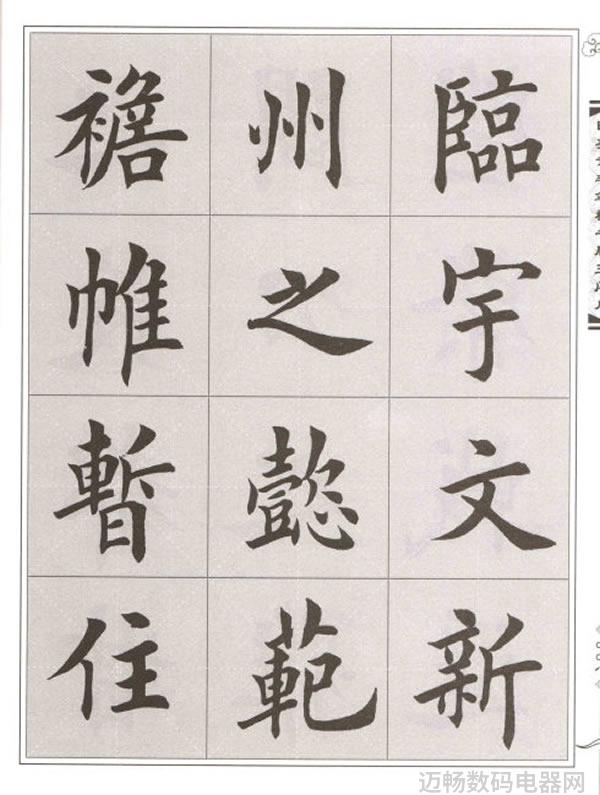 臨宇文新
州之懿範
襜帷暫住
迈畅数码电器网